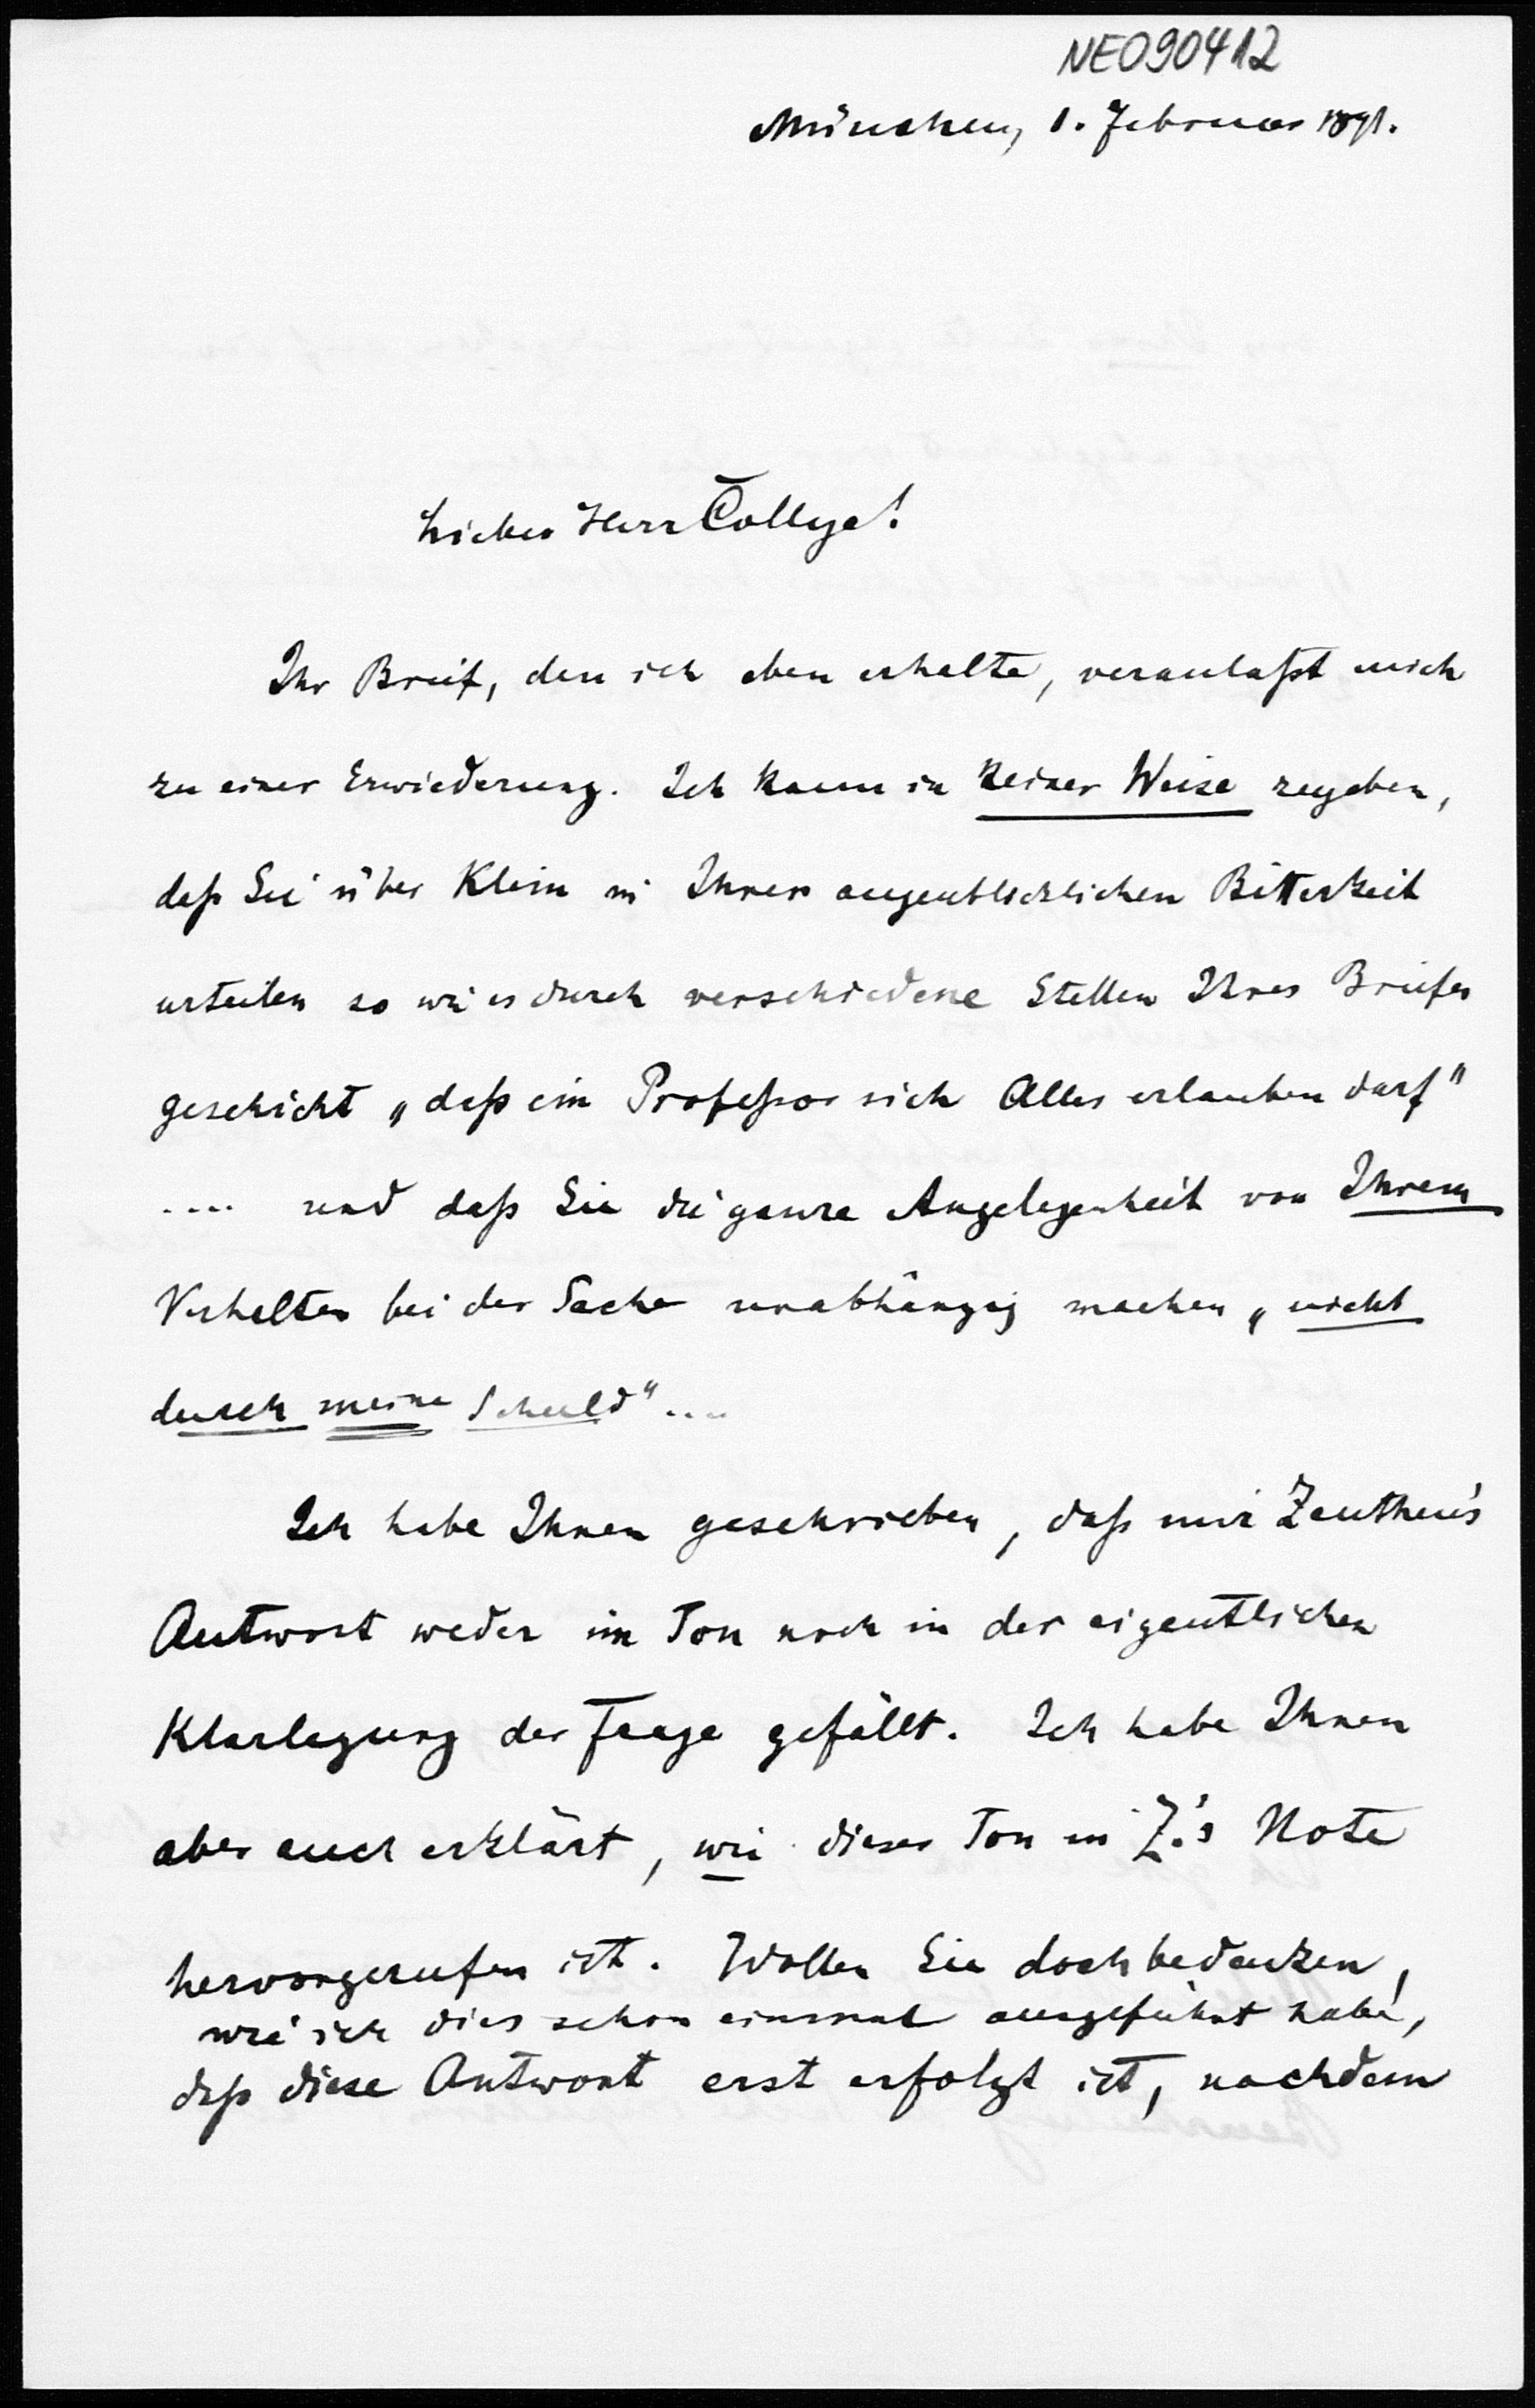 NE090412
München, 1. Februar 1891.
Lieber Herr College!
Ihr Brief, den ich eben erhalte, veranlaßt mich
zu einer Erwiederung. Ich kann in keiner Weise zugeben,
daß Sie über Klein in Ihrer augenblicklichen Bitterkeit
urteilen so wie es durch verschiedene Stellen Ihres Briefes
geschieht „daß ein Professor sich Alles erlauben darf"
.... und daß Sie die ganze Angelegenheit von Ihrem
Verhalten bei der Sache unabhängig machen „nicht
durch meine Schuld" ....
Ich habe Ihnen geschrieben, daß mir Zeuthen's
Antwort weder im Ton noch in der eigentlichen
Klarlegung der Frage gefällt. Ich habe Ihnen
aber auch erklärt, wie dieser Ton in Z.'s Note
hervorgerufen ist. Wollen Sie doch bedenken,
wie ich dies schon einmal ausgeführt habe,
daß diese Antwort erst erfolgt ist, nachdem